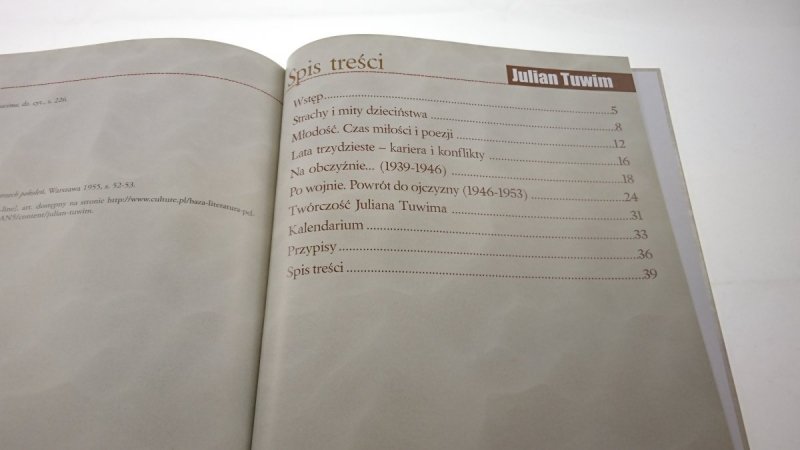 cyt., s. 226.
Warszawa 1955, s. 52-53.
art. dostępny na stronie http://www.culture.pl/baza-literatura-pel
Spis treści
Julian Tuwim
Wstęp 5
Strachy i mity dzieciństwa 8
Młodość. Czas miłości i poezji 12
Lata trzydzieste – kariera i konflikty 16
Na obczyźnie... (1939-1946) 18
Po wojnie. Powrót do ojczyzny (1946-1953) 24
Twórczość Juliana Tuwima 31
Kalendarium 33
Przypisy 36
Spis treści 39